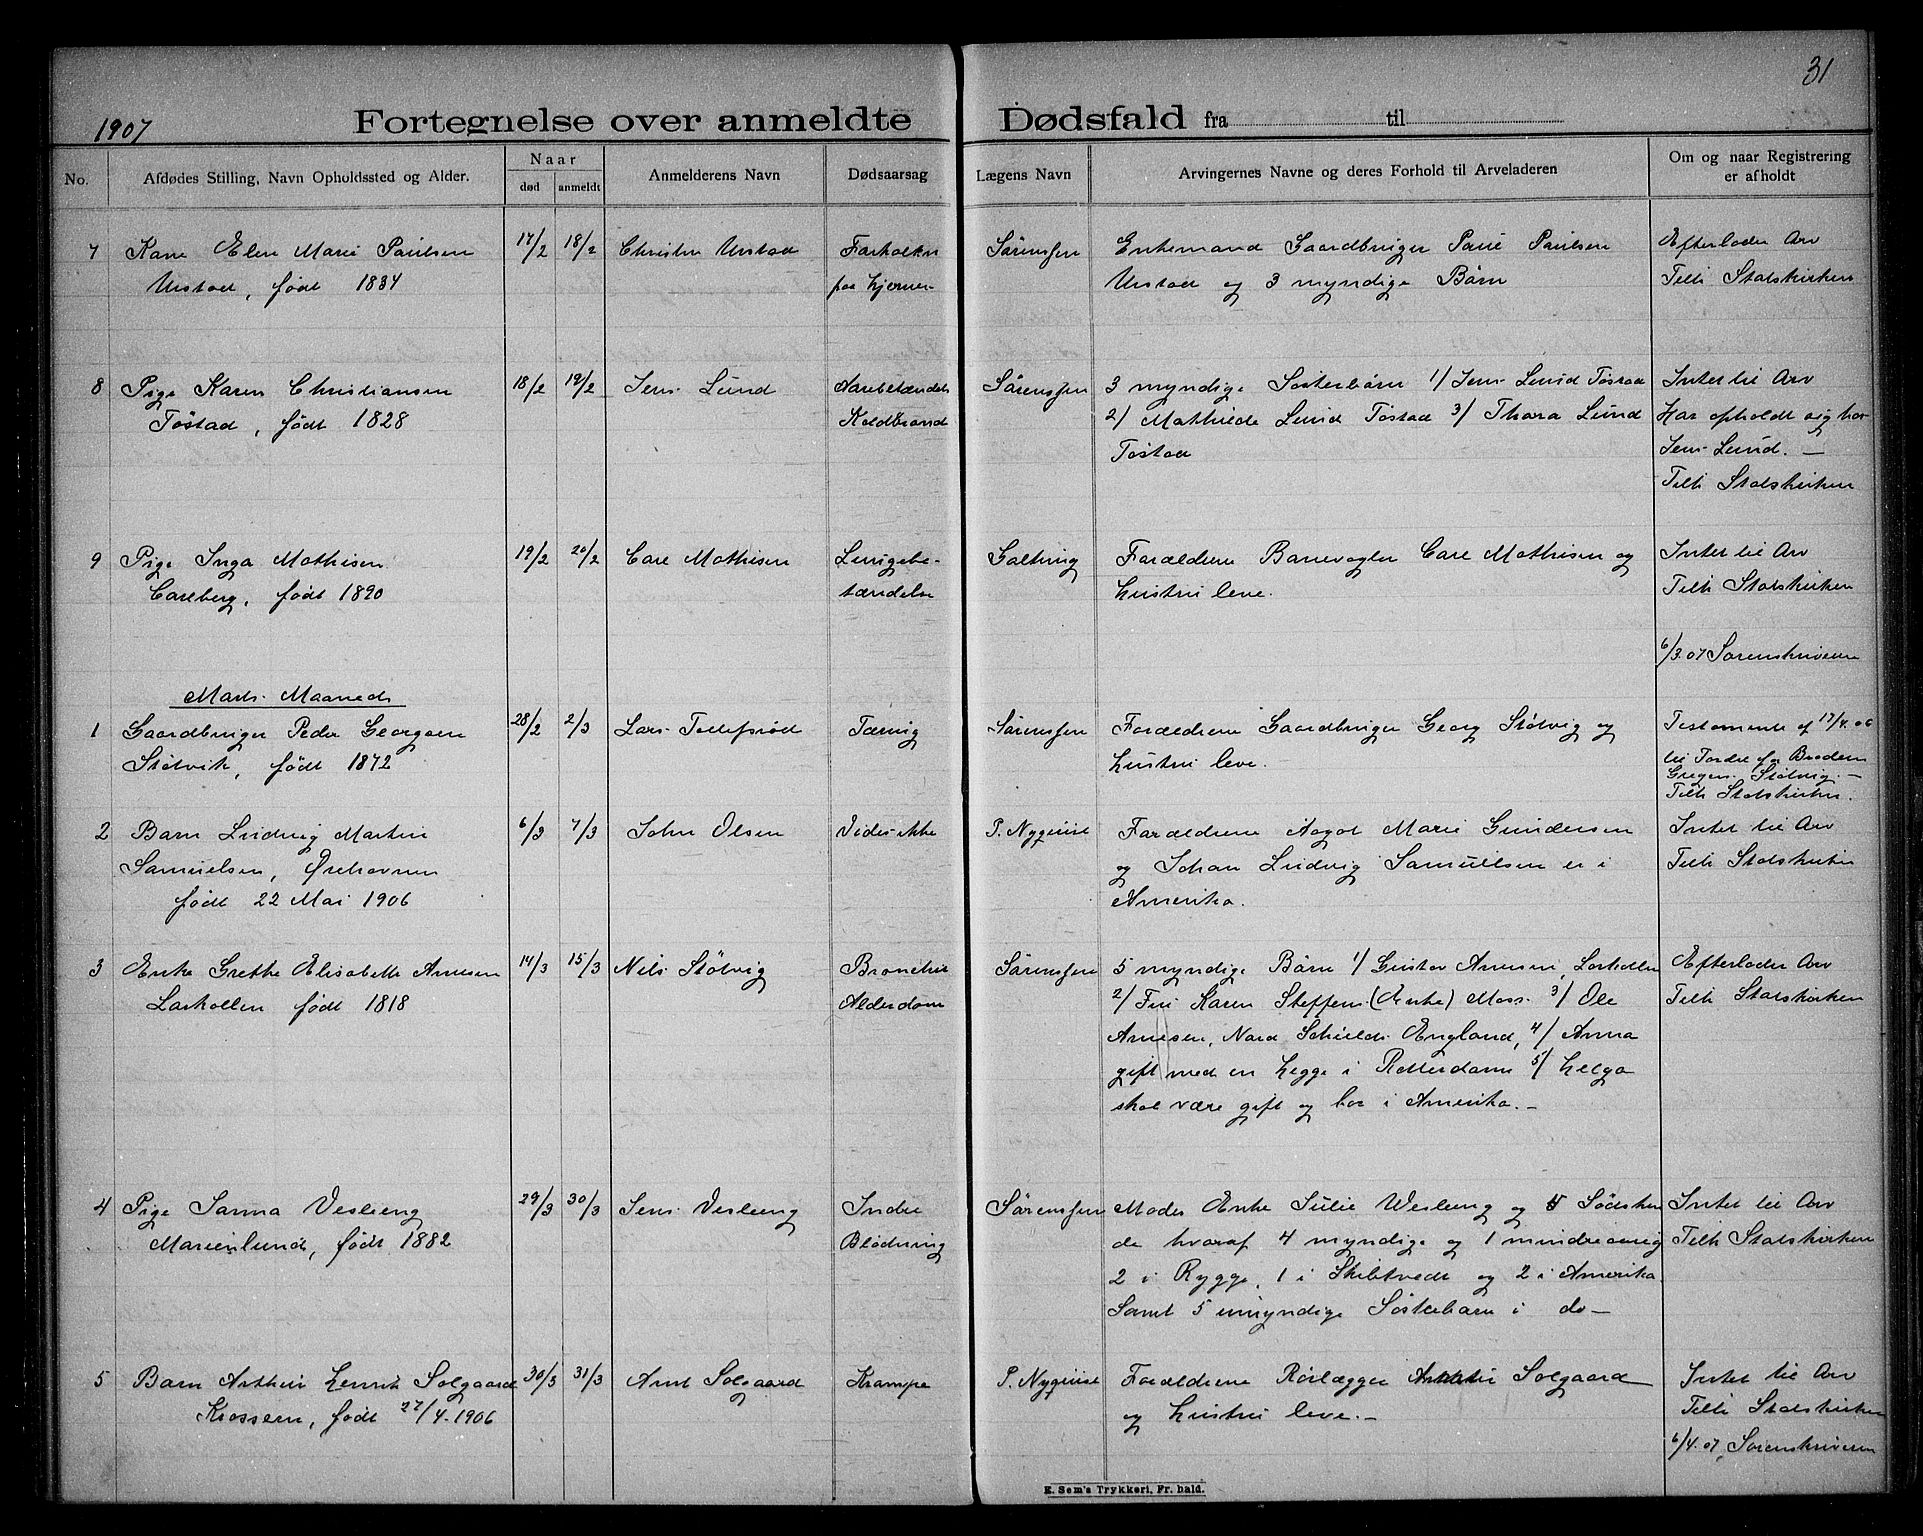 31
1907 Fortegnelse over anmeldte Dødsfald fra til
No. Afdødes Stilling, Navn Opholdssted og Alder. Naar død anmeldt Anmelderens Navn Dødsaarsag Lægens Navn Arvingernes Navne og deres Forhold til Arveladeren Om og naar Registrering er afholdt
7 Kone Elen Marie Paulsen 17/2 18/2 Christen Urstad Forkalkn Sørenssen Enkemand Gaardbruger Paul Paulsen Efterlader Arv
Urstad, født 1834 paa Hjerner Urstad og 3 myndige Børn Tilh Statskirken
8 Pige Karen Christiansen 18/2 19/2 Jens Lund Aarebetændels Sørenssen 3 myndige Søsterbørn 1/ Jens Lund Tøstad Intet til Arv
Tøstad, født 1828 Koldbrand 2/ Mathilde Lund Tøstad 3/ Thora Lund Har opholdt sig hos
Tøstad Jens Lund. —
Tilh Statskirken
9 Pige Inga Mathisen 19/2 20/2 Carl Mathisen Lungebe- Galtung Forældrene Banevogter Carl Mathisen og Intet til Arv
Carlberg, født 1890 tændelse Hustru leve. Tilh Statskirken
6/3 07 Sorenskriveren
Marts Maaned
1 Gaardbruger Peder Georgsen 28/2 2/3 Lars Tollefsrød Tæring Sørenssen Forældrene Gaardbruger Georg Støtvig og Testamente af 17/4. 06
Støtvik, født 1872 Hustru leve. til Fordel for Broderen
Støtvig. —
Tilh Statskirken.
2 Barn Ludvig Martin 6/3 7/3 John Olsen Vides ikke P. Nyquist Forældrene Aagot Marie Gundersen Intet til Arv
Samuelsen, Ørehavnen og Johan Ludvig Samuelsen er i Tilh Statskirken
født 22 Mai 1906 Amerika.
3 Enke Grethe Elisabeth Arnesen 14/3 15/3 Nils Støtvig Bronchit Sørenssen 5 myndige Børn 1/ Gustav Arnesen, Larkollen Efterlader Arv
Larkollen født 1818 Alderdom 2/ Fru Karen Steffens (Enke) Moss 3/ Ole Tilh Statskirken
Arnesen, Nord Schields England, 4/ Anna
gift med en Hegge i Rotterdam 5/ Helga
skal være gift og bor i Amerika. —
4 Pige Sanna Vesleng 29/3 30/3 Jens Vesleng Indre Sørenssen Moder Enke Julie Wesleng og 5 Sødsken Intet til Arv
Marienlund, født 1882 Blødning de hvoraf 4 myndige og 1 mindreaarig Tilh Statskirken
2 i Rygge, 1 i Skibtvedt og 2 i Amerika.
Samt 5 umyndige Søsterbørn i do —
5 Barn Arthur Henrik Solgaard 30/3 31/3 Arnt Solgaard Krampe P. Nyquist Forældrene Rørlægger Solgaard Intet til Arv
Krossern, født 27/4. 1906 og Hustru leve. — Tilh Statskirken
6/4. 07, Sorenskriveren
E. Sem's Trykkeri, Fr. hald.